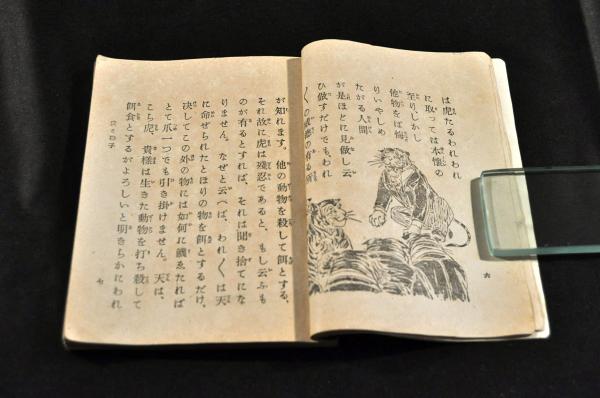 は虎たるわれわれ
に取つては本懐の
至りじかし
他物をば侮
りいやしめ
たがる人間
が是ほどに見做し云
ひ做すだけでもわれ
の有る所
が知れます。他の動物を殺して餌とする、
それ故に虎は残忍であると、もし云ふも
のが有るとすれば、それは聞き捨てにな
りません。なぜと云へば、われ〳〵は天
に命ぜられたとほりの物を餌とするだけ、
決してこの外の物には如何に饑ゑたれば
とて爪一つでも引き掛けません。天は、
こら虎、貴様は生きた動物を打ち殺して
餌食とするがよろしいと明きらかにわれ
六
七